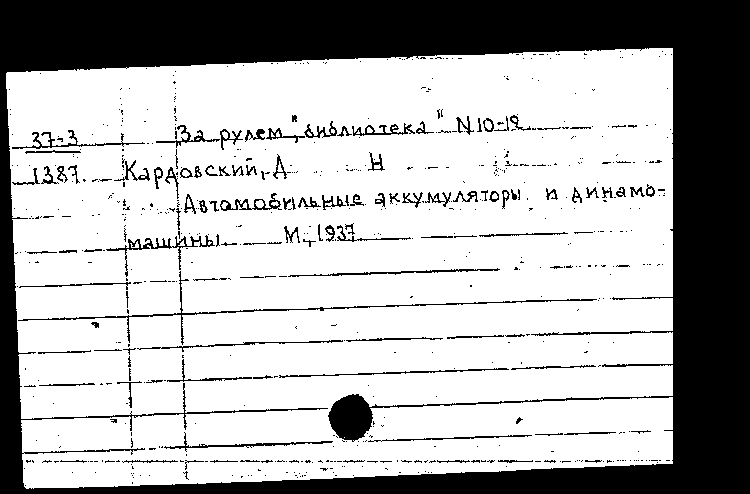 37-3 За рулем "библиотека" N 10-12
1387. Кардовский, Д Н
Автомобильные аккумуляторы и динамо-
машины. М., 1937